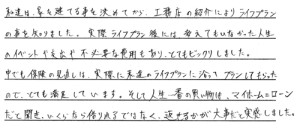 私達は、家を建てる事を決めてから、工務店の紹介によりライフプラン
の事を知りました。実際ライフプラン後には、考えてもいなかった人生
のイベントや支出や不必要な費用も知り、とてもビックリしました。
中でも保険の見直しは、実際に夫達のライフプランに沿ってプランしてもらった
ので、とても満足しています。そして人生一番の買い物は、マイホームとローン
だと聞き、いくらなら借りれるではなく、返せるかが大事だと実感しました。